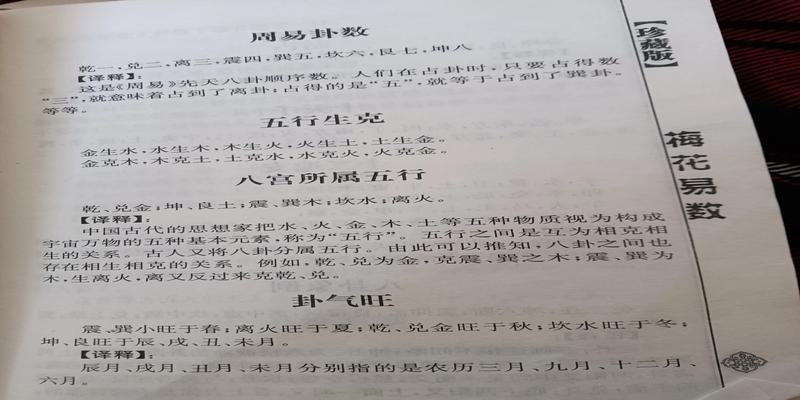 周易卦数
乾一,兑二,离三,震四,巽五,坎六,艮七,坤八
【译释】:
这是《周易》先天八卦顺序数。人们在占卦时,只要占得数
“三”,就意味着占到了离卦;占得的是“五”,就等于占到了巽卦。
等等。
五行生克
金生水,水生木,木生火,火生土,土生金。
金克木,木克土,土克水,水克火,火克金。
八宫所属五行
乾、兑金;坤、艮土;震、巽木;坎水;离火。
【译释】:
中国古代的思想家把水、火、金、木、土等五种物质视为构成
宇宙万物的五种基本元素,称为“五行”。五行之间是互为相克相
生的关系。古人又将八卦分属五行。由此可以推知,八卦之间也
存在相生相克的关系。例如,乾、兑为金,克震、巽之木;震、巽为
木,生离火,离又反过来克乾、兑。
卦气旺
震、巽小旺于春;离火旺于夏;乾、兑金旺于秋;坎水旺于冬;
坤、艮旺于辰、戌、丑、未月。
【译释】:
辰月、戌月、丑月、未月分别指的是农历三月、九月、十二月、
六月。
【珍藏版】
梅花易数